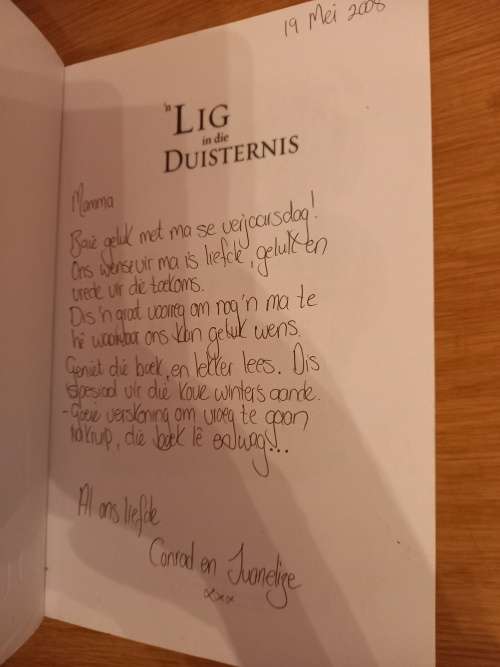 19 Mei 2008
'n LIG
in die
DUISTERNIS
Mamma
Baie geluk met ma se verjaarsdag!
Ons wense vir ma is liefde, geluk en
vrede vir die toekoms.
Dis 'n groot voorreg om nog 'n ma te
hê wat ons kan geluk wens.
Geniet die boek, en lekker lees. Dis
spesiaal vir die koue winters aande.
- Goeie verskoning om vroeg te gaan
inkruip, die boek lê en wag...
Al ons liefde
Conrad en
xxx